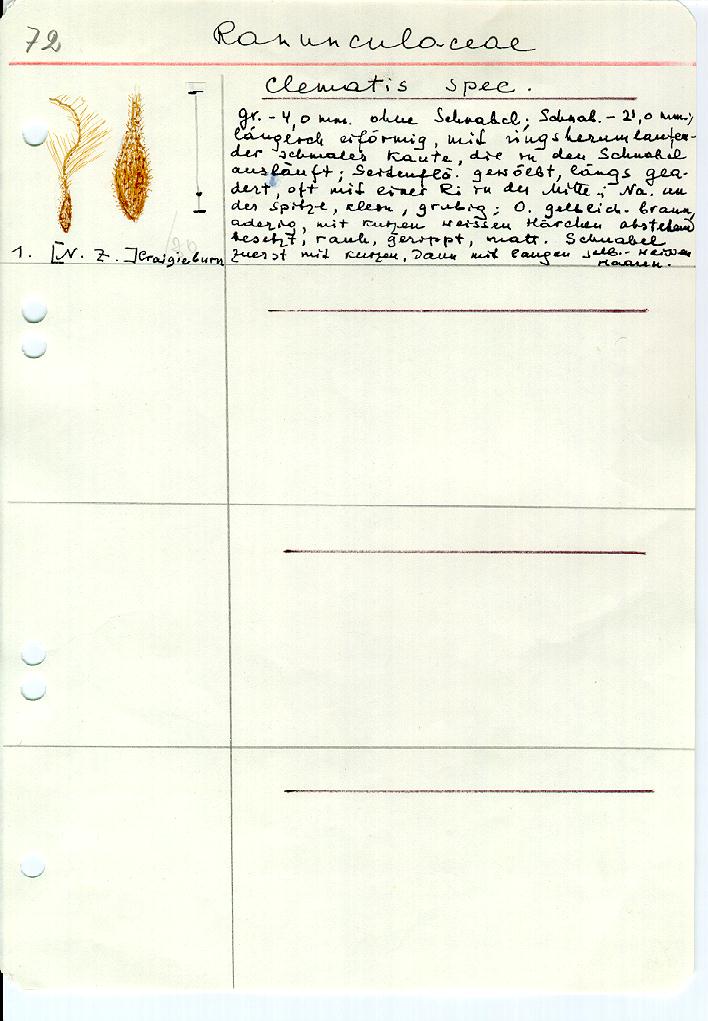 72
Ranunculaceae
Clematis spec.
gr. - 4,0 mm. ohne Schnabel; Schnab. - 21,0 mm;
länglich eiförmig, mit ringsherumlaufen-
der schmaler Kante, die in den Schnabel
ausläuft; Seitenflä. gewölbt, längs gea-
dert, oft mit einer Ri in der Mitte; Na. an
der Spitze, klein, grubig; O. gelblich-braun,
aderig, mit kurzen weissen Härchen abstehend
besetzt, rauh, gerippt, matt. Schnabel
zuerst mit kurzen, dann mit langen gelb-weissen
Haaren.
1. [N. Z.] Craigieburn